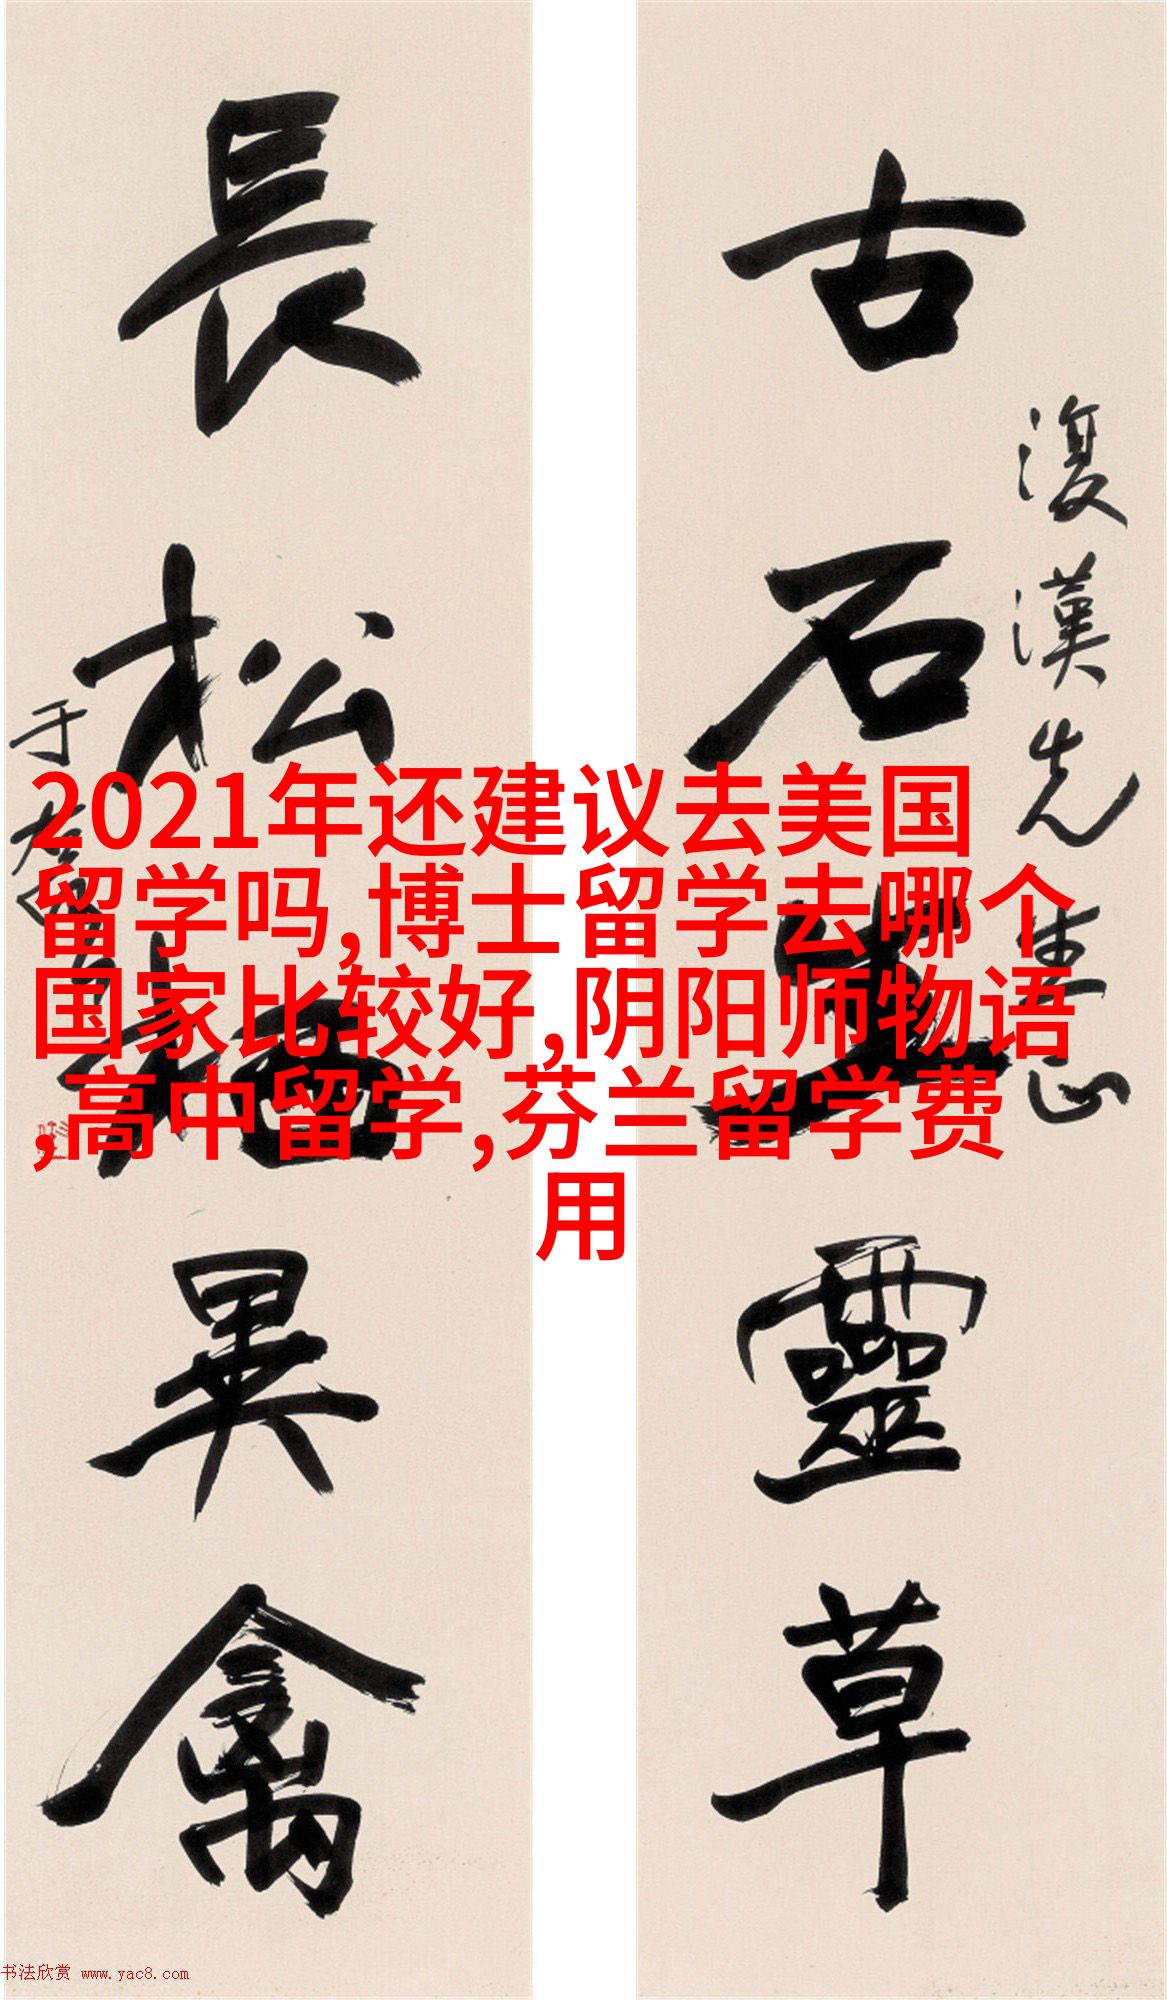 古石生靈草
復漢先生正
長松栖異禽
于右任
2021年还建议去美国
留学吗,博士留学去哪个
国家比较好,阴阳师物语
,高中留学,芬兰留学费
用
书法欣赏 www.yac8.com